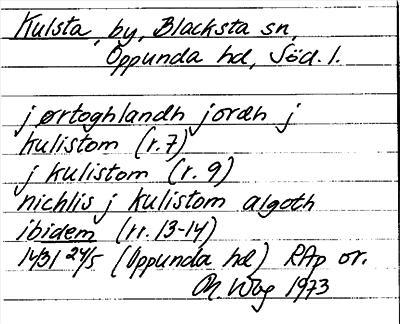 Kulsta, by, Blacksta sn,
Oppunda hd, Söd. l.
j ørtoghlandh jordh j
kulistom (r. 7)
j kulistom (r. 9)
nichlis j kulistom algoth
ibidem (rr. 13-14)
1431 24/5 (Oppunda hd) RAp or.
Wbg 1973